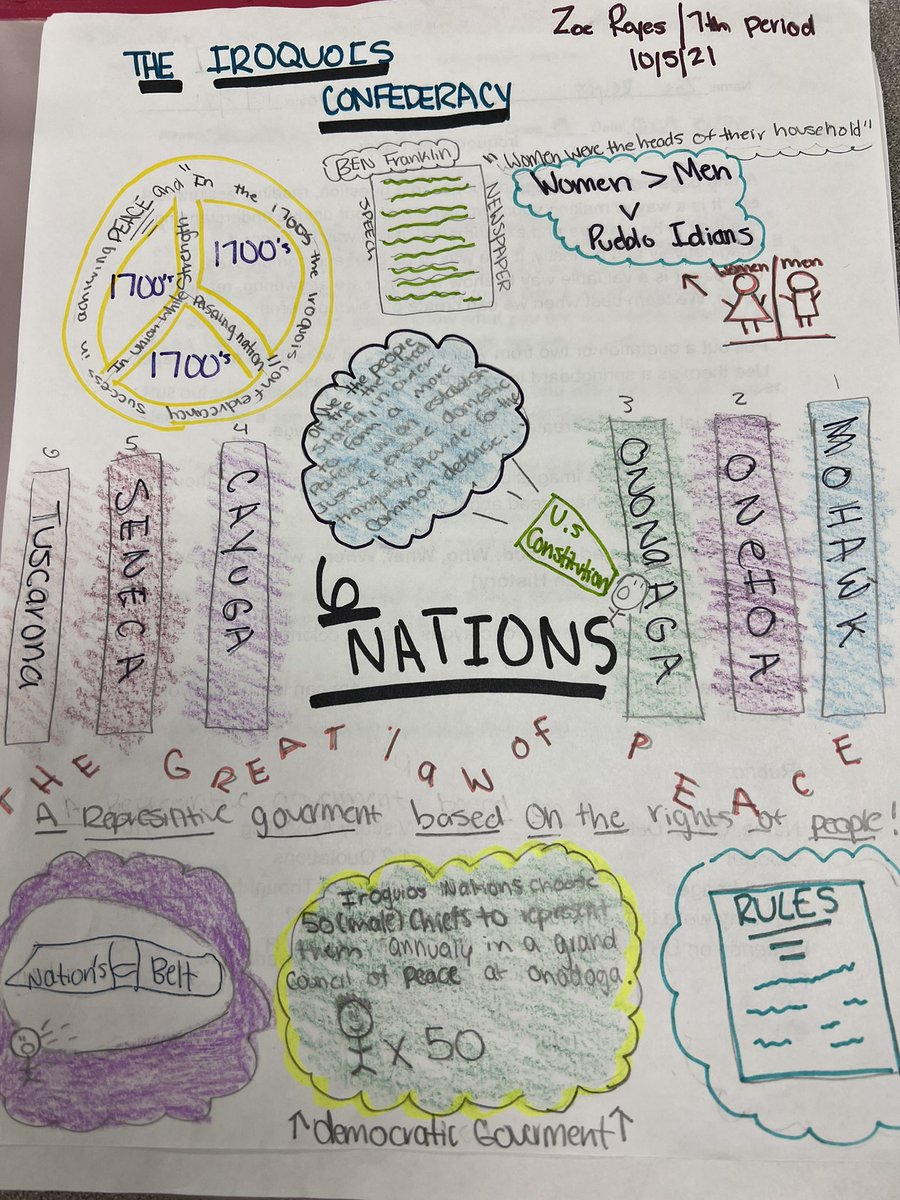 Zoe Rayes / 7th period
10/5/21
THE IROQUOIS
CONFEDERACY
BEN Franklin
SPEECH
NEWSPAPER
"Women were the heads of their household"
Women > Men
v
Pueblo Idians
women
men
"In the 1700's the iroquois confedircancy success in achieving PEACE and
strength in union while
Possing nation"
1700's
1700's
1700's
We the people
of the the united
states, in order
to form a more
perfect union establish
justice ensure domestic
tranquility, provide for the
common defense.
U.S
Constitution
6
NATIONS
6
Tuscarona
5
SENECA
4
CAYUGA
3
ONONDAGA
2
ONEIDA
1
MOHAWK
THE GREAT law OF PEACE
A Represintive goverment based On the rights of people!
Nation's Belt
Iroquios Nations choose
50 (male) Chiefs to represent
them annualy in a grand
council of peace at onodaga.
x 50
↑democratic Goverment↑
RULES